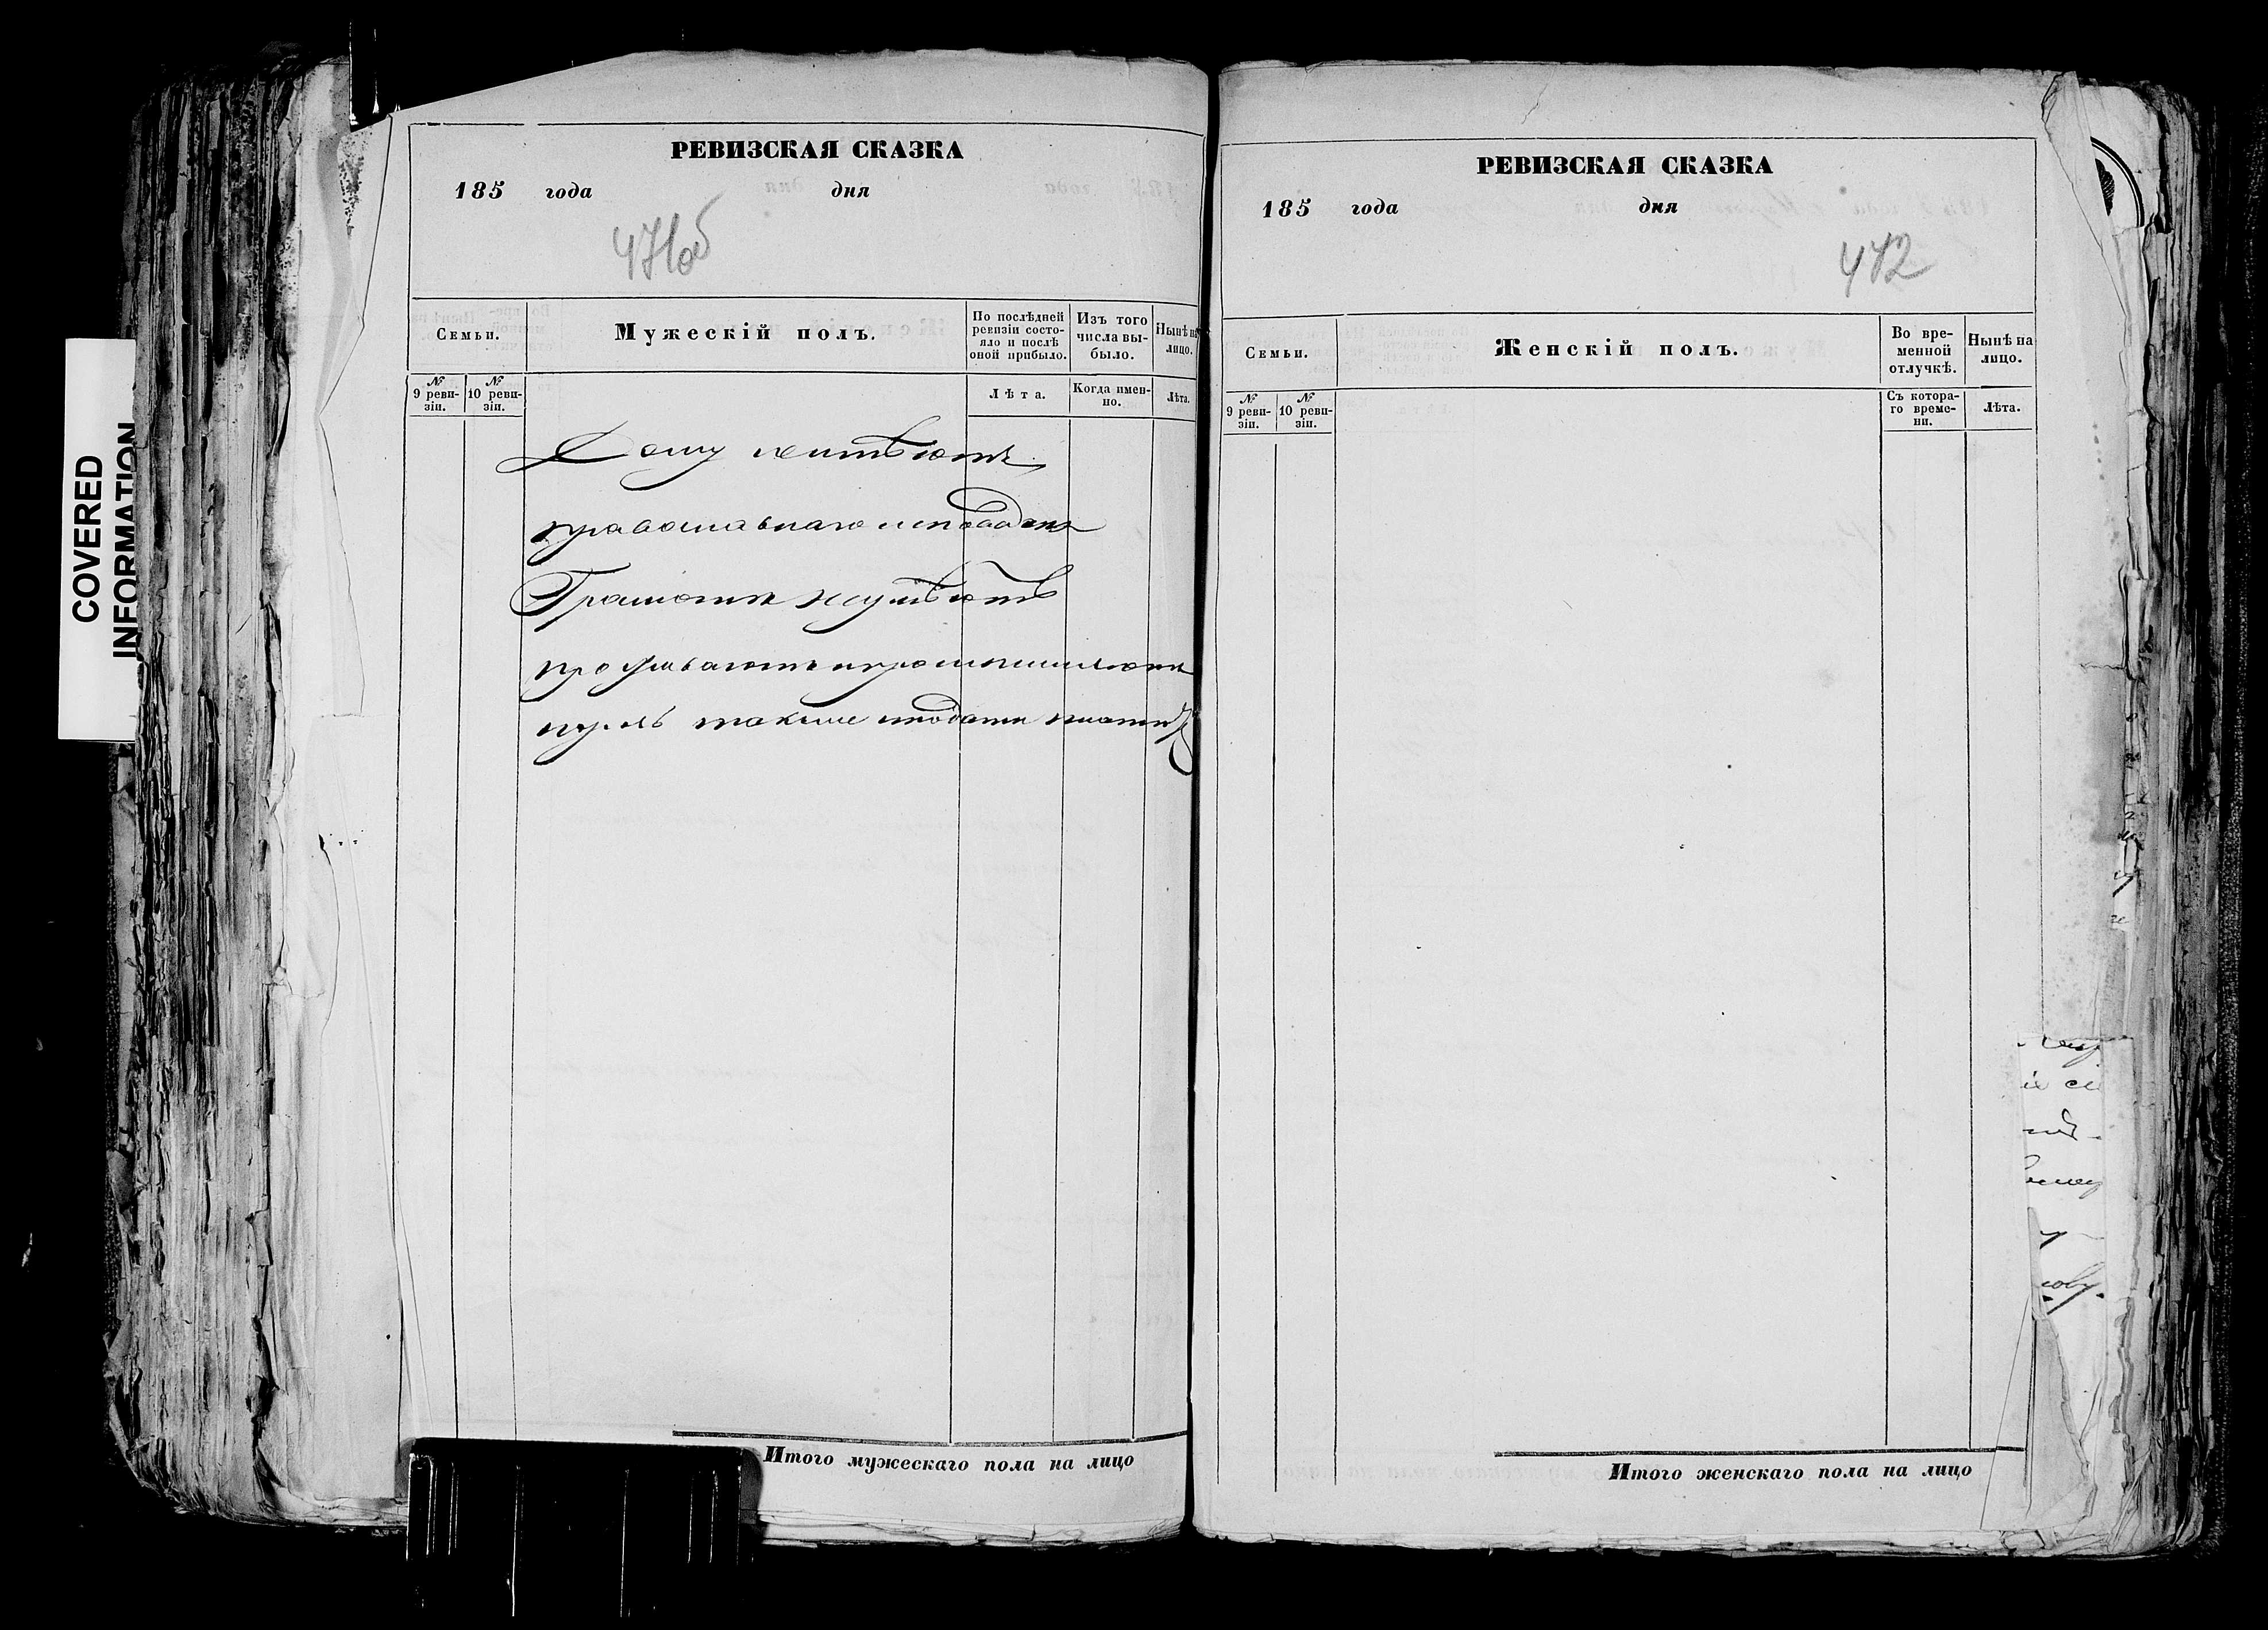 COVERED
INFORMATION
РЕВИЗСКАЯ СКАЗКА
185 года дня
471об
Семьи.
Мужескій полъ.
По послѣдней ревизіи состояло и послѣ оной прибыло.
Изъ того числа выбыло.
Нынѣ на лицо.
№ 9 ревизіи.
№ 10 ревизіи.
Лѣта.
Когда именно.
Лѣта.
Дому неимѣютъ
православнаго исповѣд
Грамотѣ неумѣютъ
проживаютъ
также подати
Итого мужескаго пола на лицо
РЕВИЗСКАЯ СКАЗКА
185 года дня
472
Семьи.
Женскій полъ.
Во временной отлучкѣ.
Нынѣ на лицо.
№ 9 ревизіи.
№ 10 ревизіи.
Съ котораго времени.
Лѣта.
Итого женскаго пола на лицо